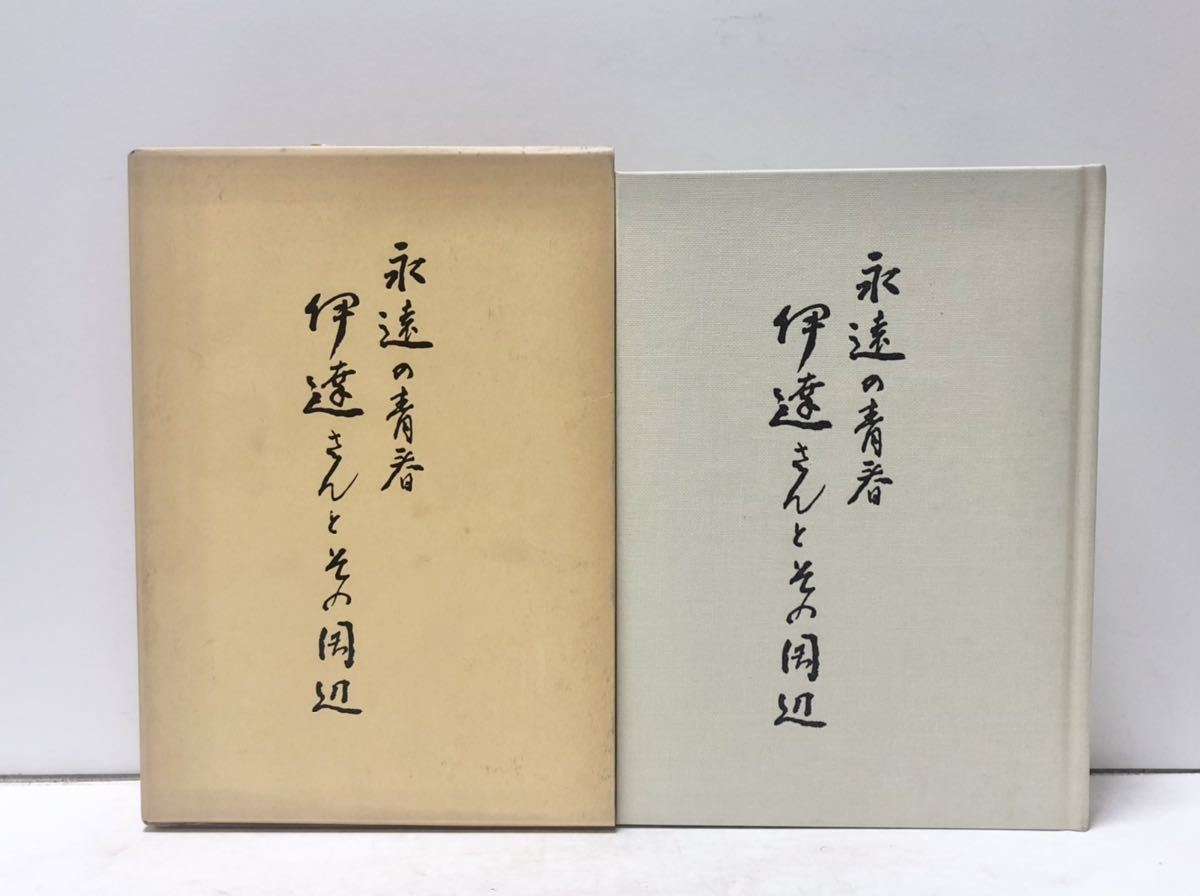 永遠の青春
伊達さんとその周辺
永遠の青春
伊達さんとその周辺